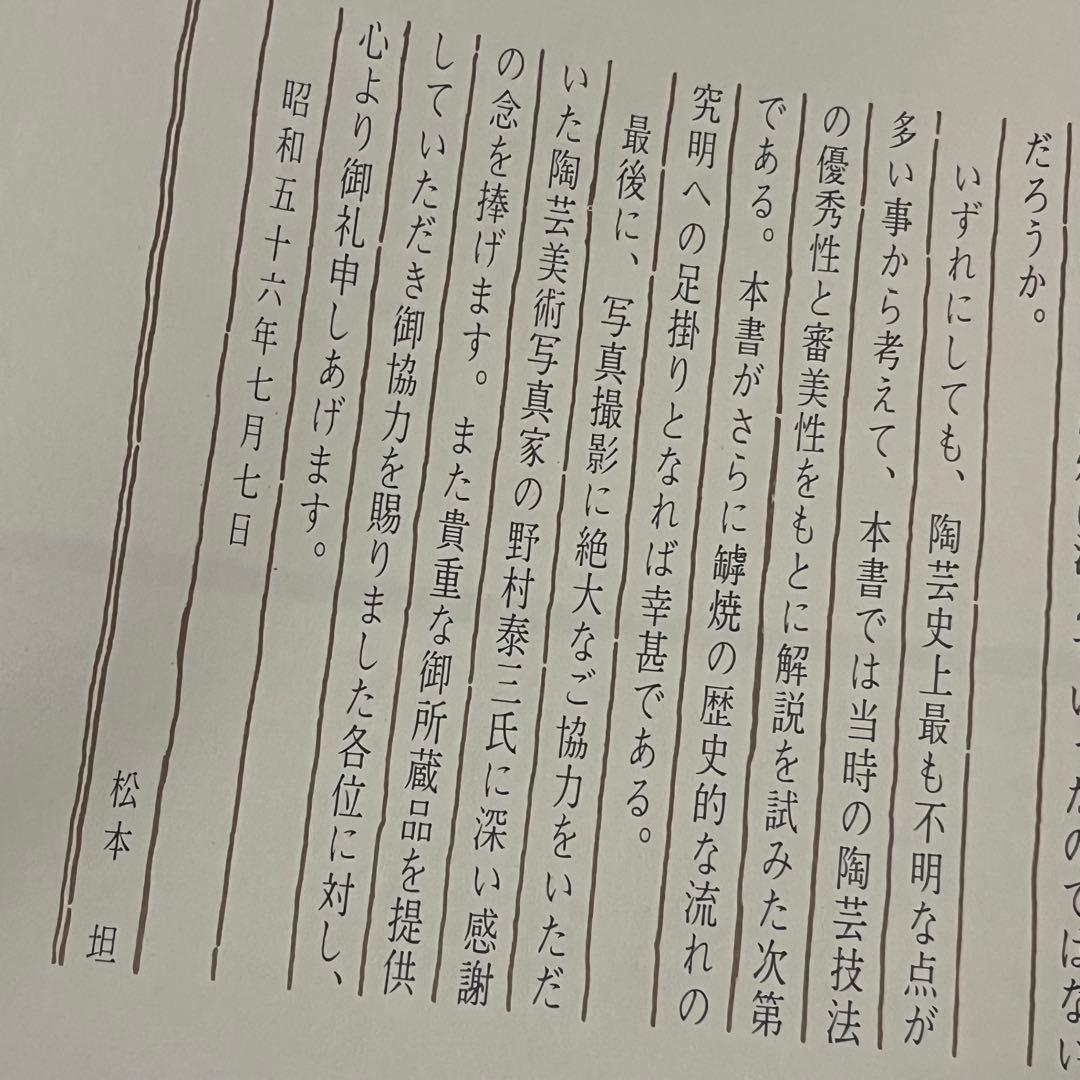 いったのではない
だろうか。
いずれにしても、陶芸史上最も不明な点が
多い事から考えて、本書では当時の陶芸技法
の優秀性と審美性をもとに解説を試みた次第
である。本書がさらに罅焼の歴史的な流れの
究明への足掛りとなれば幸甚である。
最後に、写真撮影に絶大なご協力をいただ
いた陶芸美術写真家の野村泰三氏に深い感謝
の念を捧げます。また貴重な御所蔵品を提供
していただき御協力を賜りました各位に対し、
心より御礼申しあげます。
昭和五十六年七月七日
松本 坦